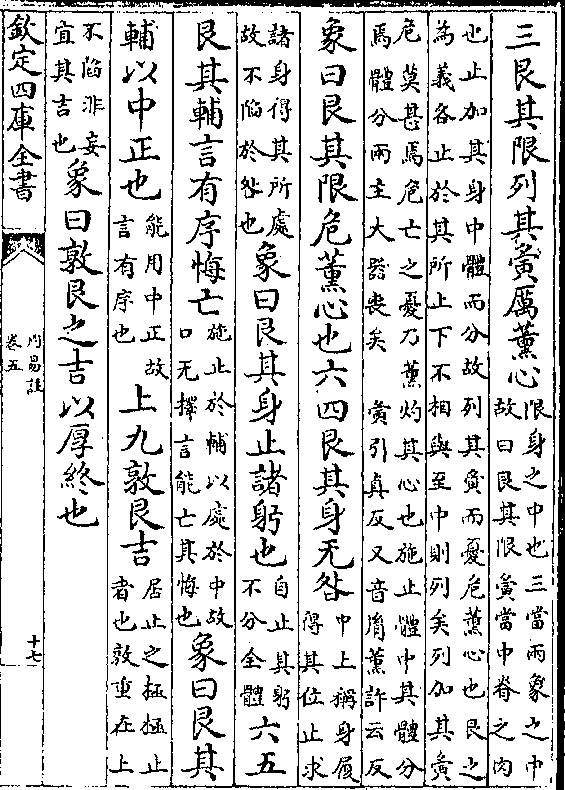 三艮其限列其夤厲薰心限身之中也三當兩象之中故曰艮其限夤當中脊之肉
也止加其身中體而分故列其夤而憂危薰心也艮之
為義各止於其所上下不相與至中則列矣列加其夤
危莫甚焉危亡之憂乃薰灼其心也施止體中其體分
焉體分兩主大器喪矣 夤引真反又音胤薰許云反
象曰艮其限危薰心也六四艮其身无咎中上稱身履得其位止求
諸身得其所處故不陷於咎也象曰艮其身止諸躬也自止其躬不分全體六五
艮其輔言有序悔亡施止於輔以處於中故口无擇言能亡其悔也象曰艮其
輔以中正也能用中正故言有序也上九敦艮吉居止之極極止者也敦重在上
不陷非妄宜其吉也象曰敦艮之吉以厚終也
欽定四庫全書
周易註
卷五
十七